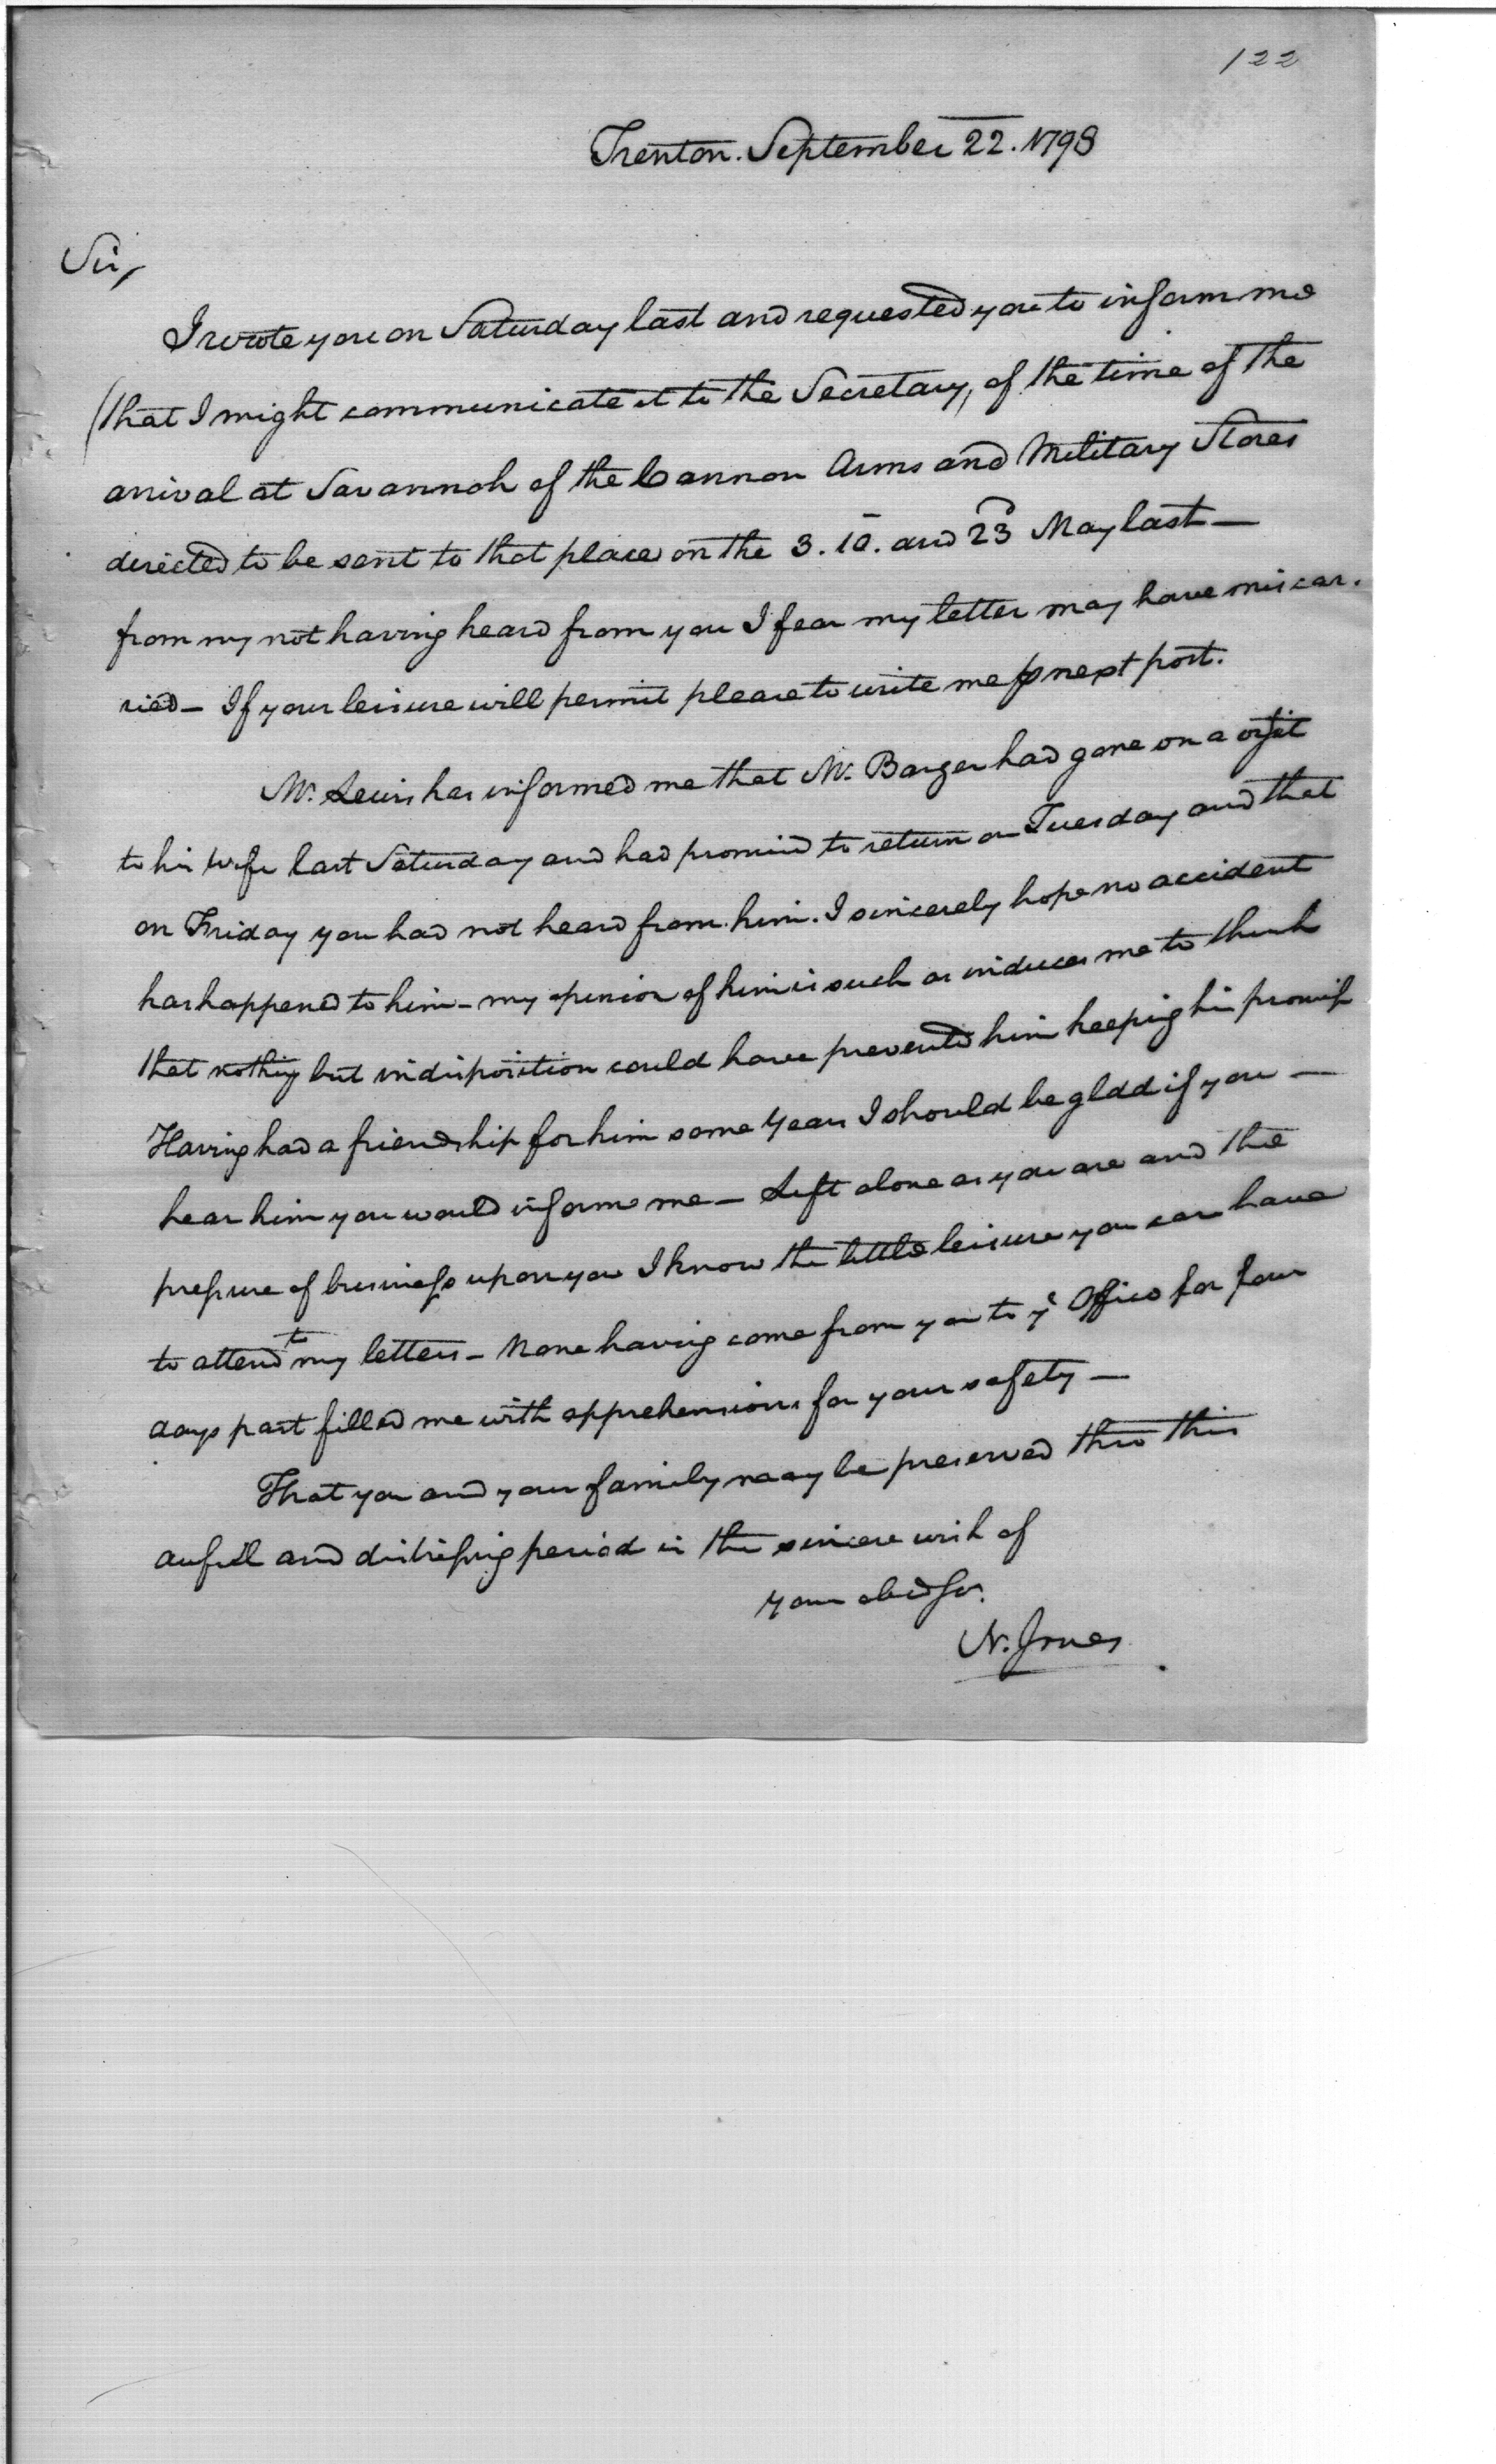 122
Trenton. September 22. 1798
Sir,
I wrote you on Saturday last and requested you to inform me
(that I might communicate it to the Secretary, of the time of the
arrival at Savannah of the Cannon Arms and Military Stores
directed to be sent to that place on the 3. 10. and 23 May last —
from my not having heard from you I fear my letter may have miscar.
ried — If your leisure will permit please to write me p next post.
Mr. Lewis has informed me that Mr. Barger had gone on a visit
to his wife last Saturday and had promised to return on Tuesday and that
on Friday you had not heard from him. I sincerely hope no accident
has happened to him — my opinion of him is such as induces me to think
that nothing but indisposition could have prevented him keeping his promise
Having had a friendship for him some Years I should be gladd if you —
hear him you would inform me — Left alone as you are and the
pressure of business upon you I know the little leisure you can have
to attend to my letters — None having come from you to ye Office for four
days past filled me with apprehensions for your safety —
That you and your family may be preserved thro this
awful and distressing period is the sincere wish of
your obed Sv.
N. Jones